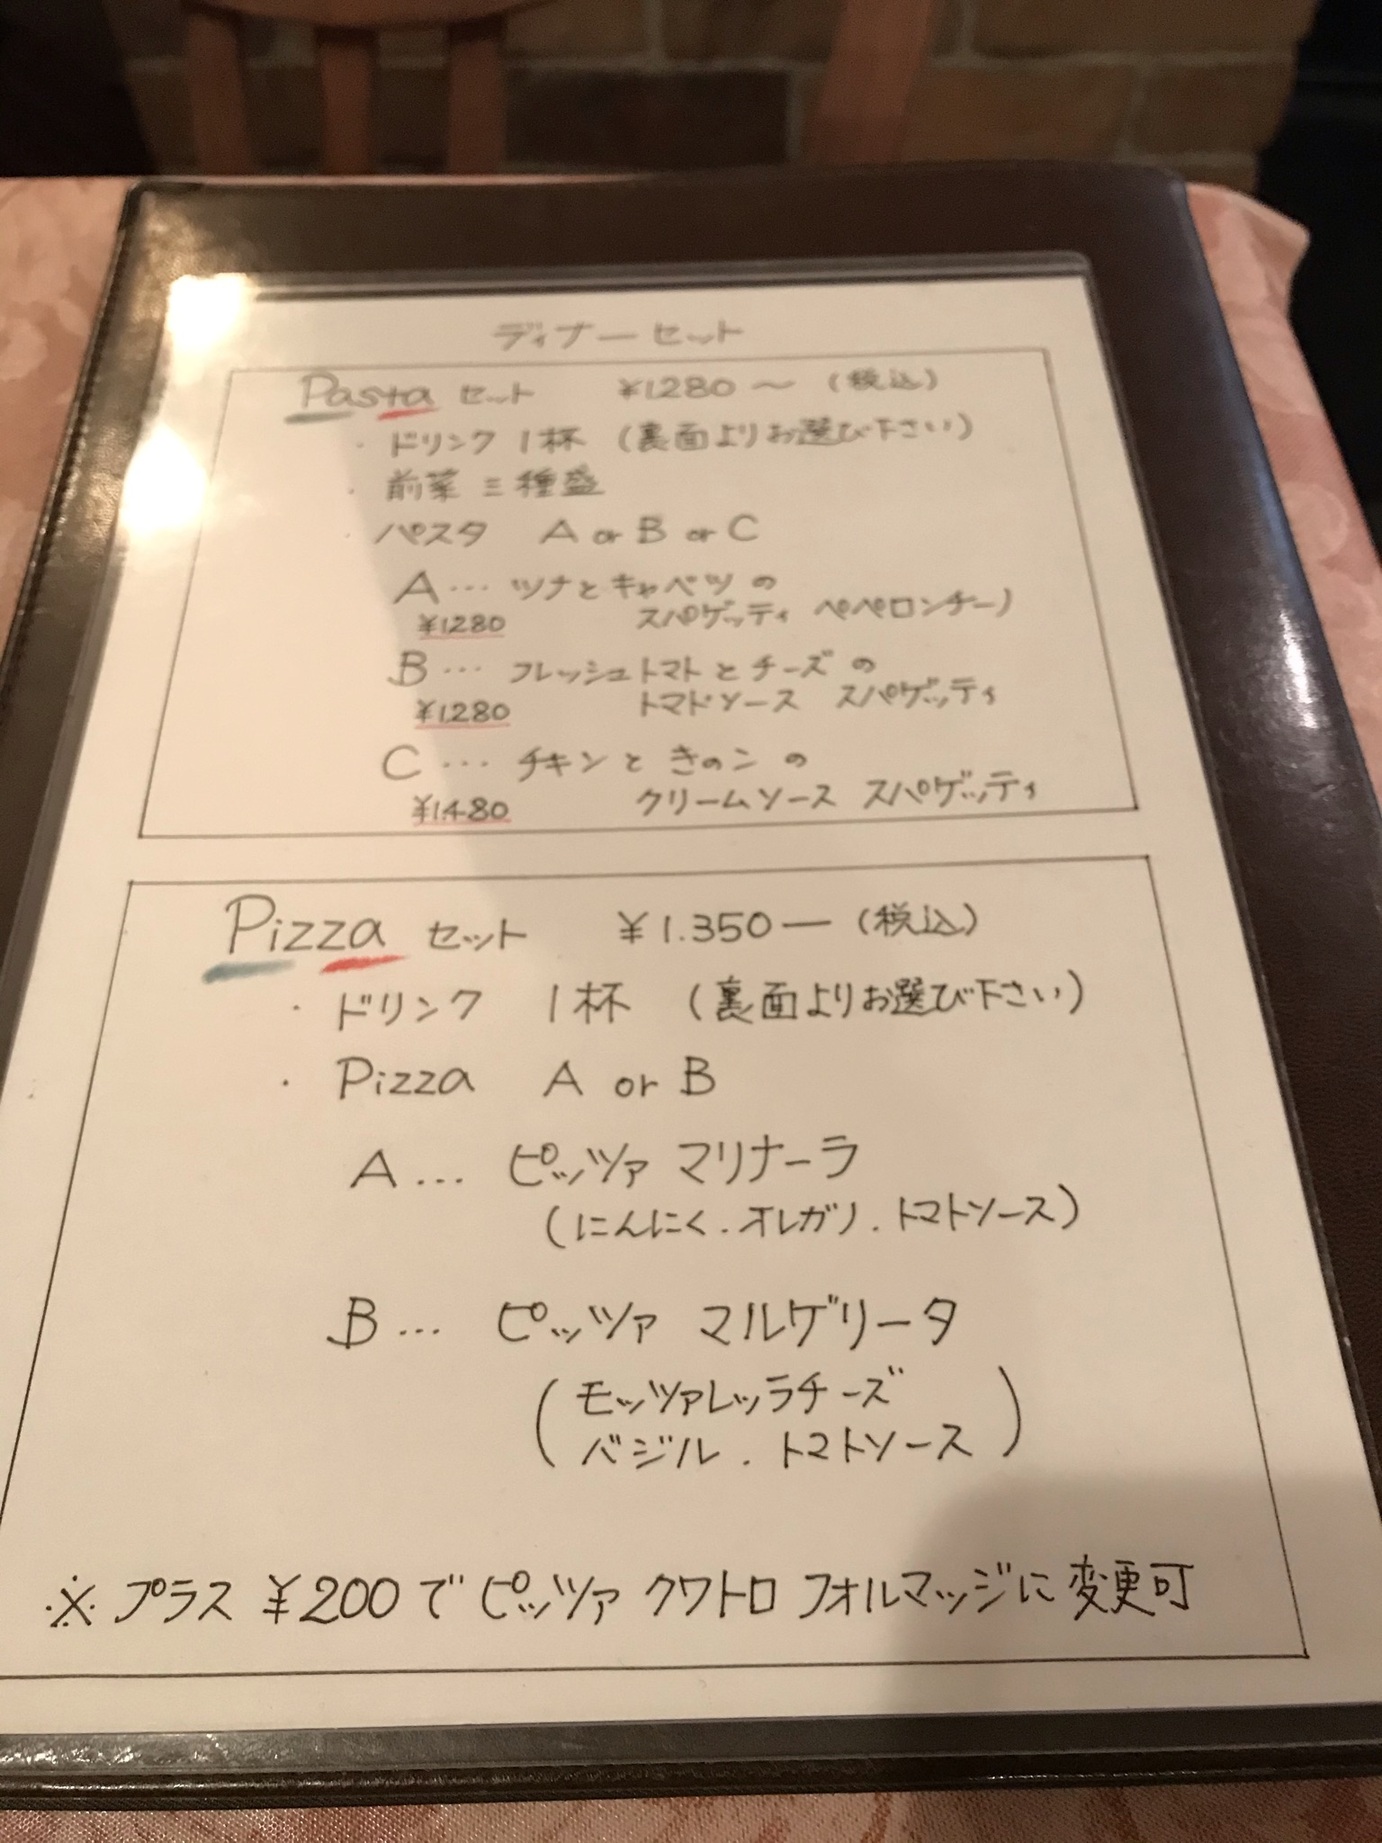 ディナーセット
Pasta セット ¥1280～ (税込)
・ドリンク 1杯 (裏面よりお選び下さい)
・前菜三種盛
・パスタ A or B or C
A… ツナとキャベツの
¥1280 スパゲッティ ペペロンチーノ
B… フレッシュトマトとチーズの
¥1280 トマトソース スパゲッティ
C… チキンときのこの
¥1480 クリームソース スパゲッティ
Pizza セット ¥1.350― (税込)
・ドリンク 1杯 (裏面よりお選び下さい)
・Pizza A or B
A… ピッツァ マリナーラ
(にんにく.オレガノ.トマトソース)
B… ピッツァ マルゲリータ
(モッツァレッラチーズ
バジル.トマトソース)
※プラス¥200でピッツァ クワトロ フォルマッジに変更可